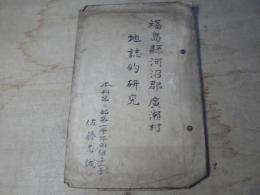 福島縣河沼郡廣瀬村
地誌的研究
本科第一部第二學年
佐藤